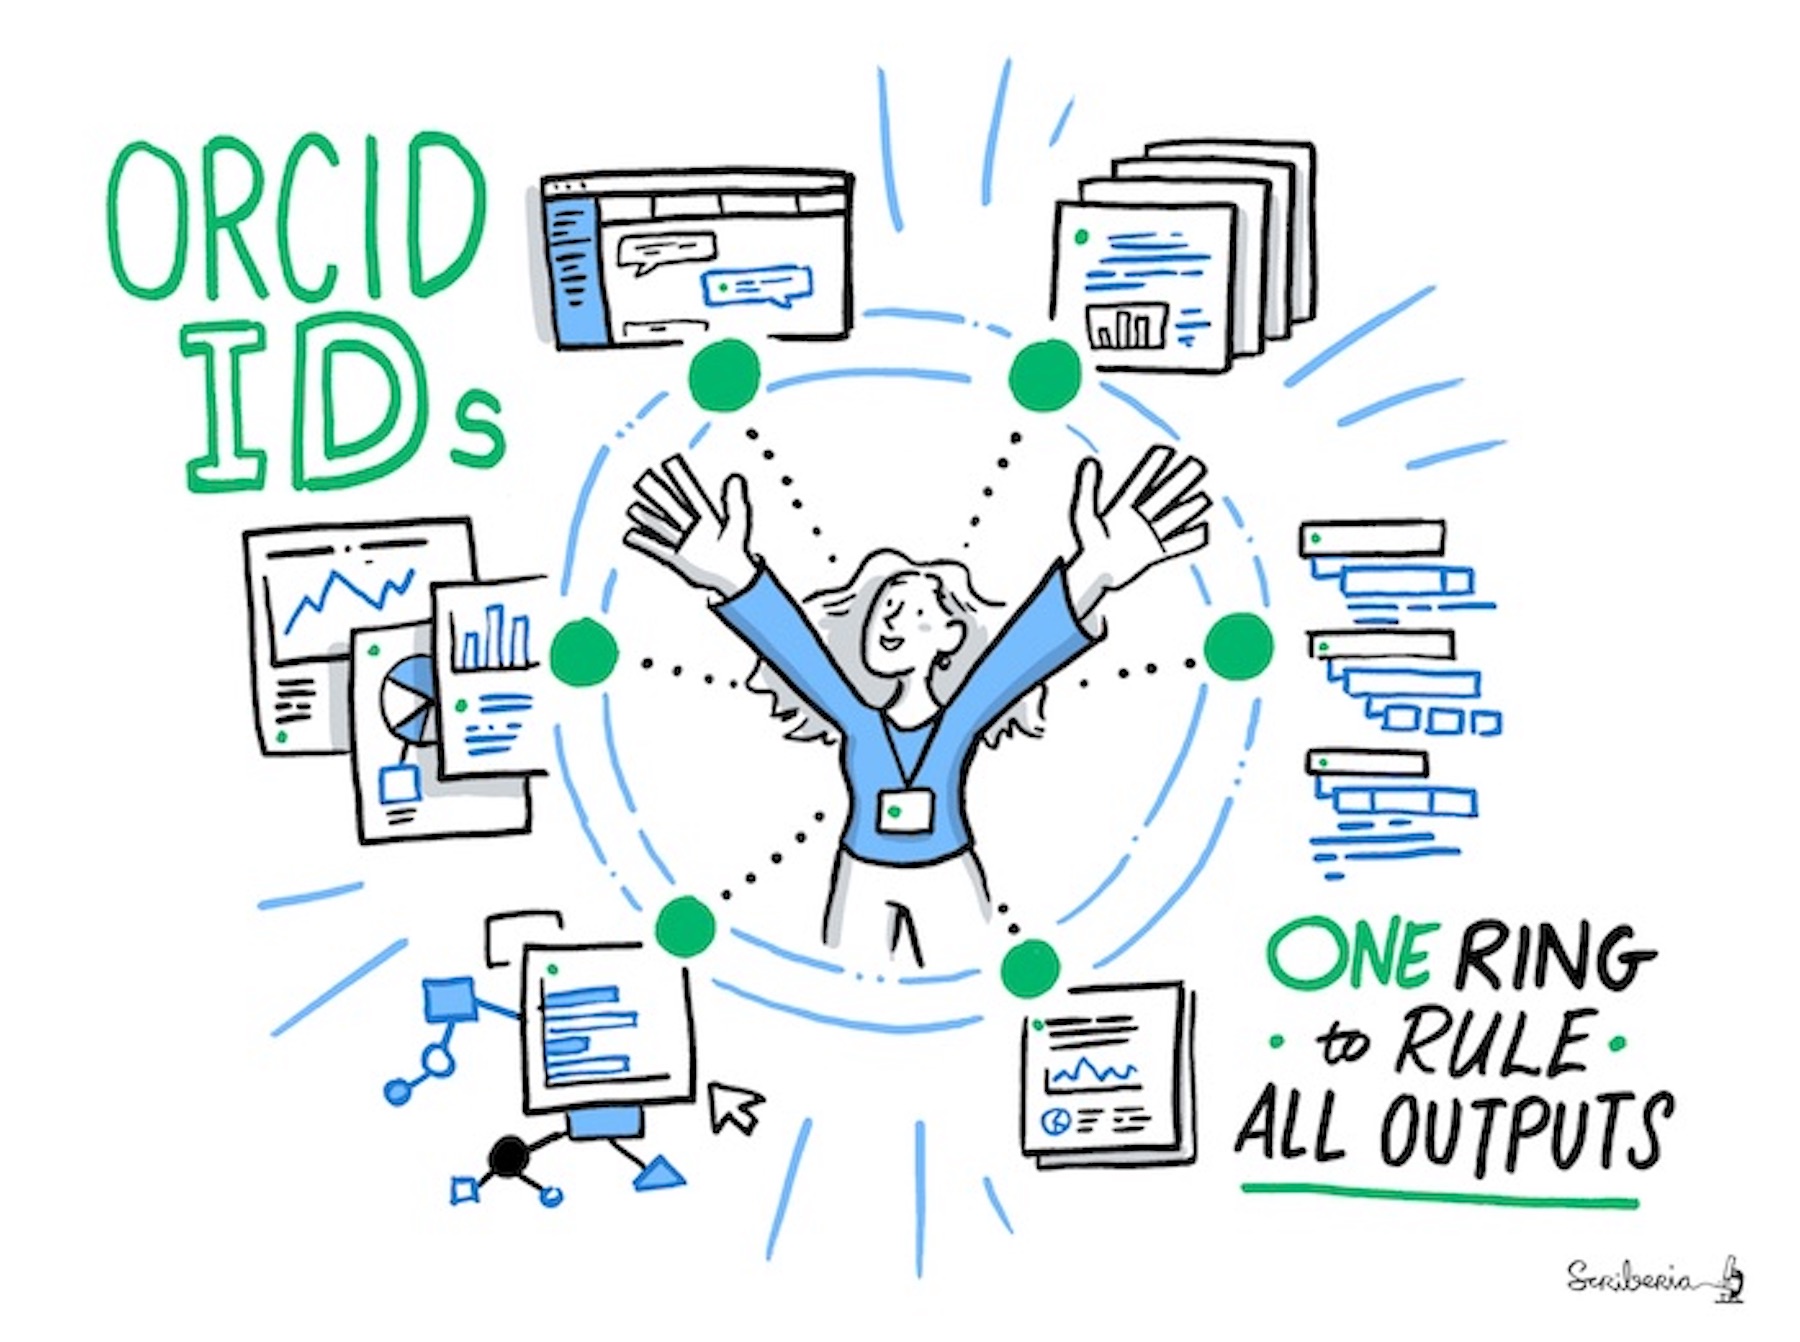 ORCID
IDs
ONE RING
• to RULE •
ALL OUTPUTS
Scriberia